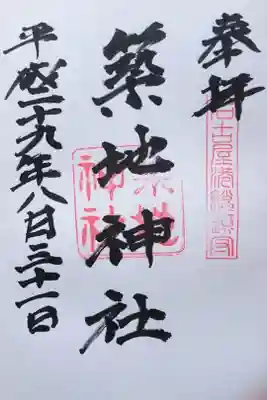 奉拝
名古屋港
築地神社
築地神社
平成二十九年八月三十一日